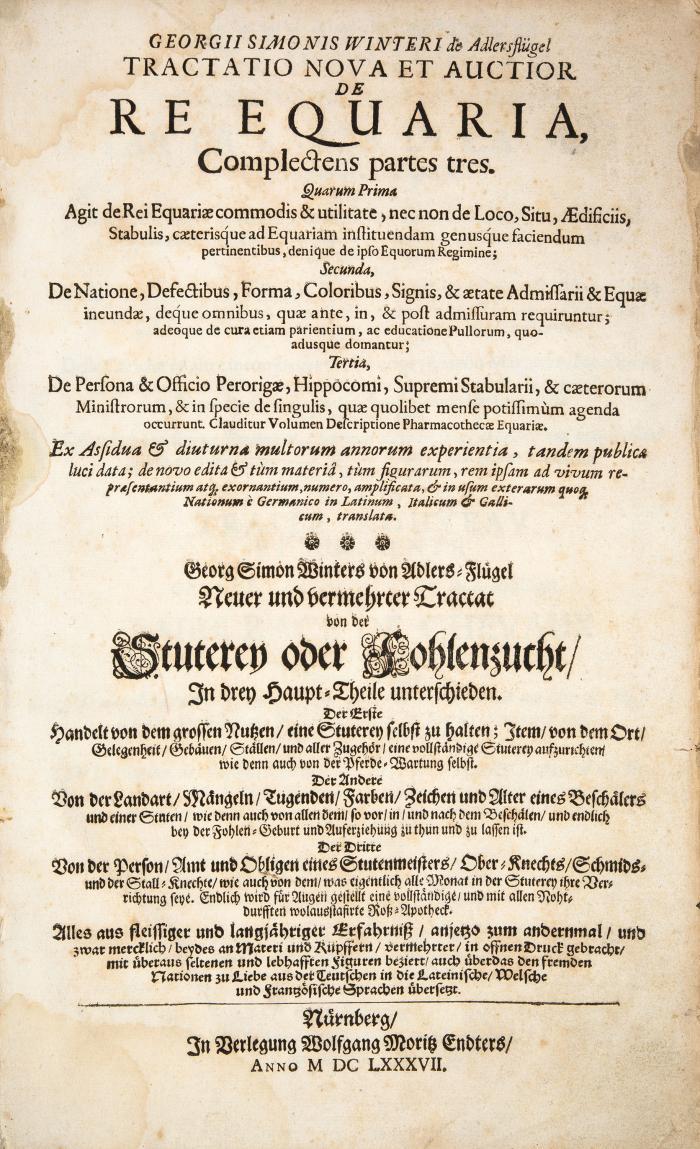 GEORGII SIMONIS WINTERI de Adlersflügel
TRACTATIO NOVA ET AUCTIOR
DE
RE EQUARIA,
Complectens partes tres.
Quarum Prima
Agit de Rei Equariæ commodis & utilitate, nec non de Loco, Situ, Ædificiis,
Stabulis, cæterisque ad Equariam instituendam genusque faciendum
pertinentibus, denique de ipso Equorum Regimine;
Secunda,
De Natione, Defectibus, Forma, Coloribus, Signis, & ætate Admissarii & Equæ
ineundæ, deque omnibus, quæ ante, in, & post admissuram requiruntur;
adeoque de cura etiam parientium, ac educatione Pullorum, quo-
adusque domantur;
Tertia,
De Persona & Officio Perorigæ, Hippocomi, Supremi Stabularii, & cæterorum
Ministrorum, & in specie de singulis, quæ quolibet mense potissimùm agenda
occurrunt. Clauditur Volumen Descriptione Pharmacothecæ Equariæ.
Ex Assidua & diuturna multorum annorum experientia, tandem publicæ
luci data; de novo edita & tùm materiâ, tùm figurarum, rem ipsam ad vivum re-
præsentantium atq. exornantium, numero, amplificata, & in usum exterarum quoq.
Nationum è Germanico in Latinum, Italicum & Galli-
cum, translata.
Georg Simon Winters von Adlers-Flügel
Neuer und vermehrter Tractat
von der
Stuterey oder Fohlenzucht/
In drey Haupt-Theile unterschieden.
Der Erste
Handelt von dem grossen Nutzen/ eine Stuterey selbst zu halten; Item/ von dem Ort/
Gelegenheit/ Gebäuen/ Ställen/ und aller Zugehör/ eine vollständige Stuterey aufzurichten/
wie denn auch von der Pferde-Wartung selbst.
Der Andere
Von der Landart/ Mängeln/ Tugenden/ Farben/ Zeichen und Alter eines Beschälers
und einer Stuten/ wie denn auch von allen dem/ so vor/ in/ und nach dem Beschälen/ und endlich
bey der Fohlen-Geburt und Auferziehung zu thun und zu lassen ist.
Der Dritte
Von der Person/ Amt und Obligen eines Stutenmeisters/ Ober-Knechts/ Schmids-
und der Stall-Knechte/ wie auch von dem/ was eigentlich alle Monat in der Stuterey ihre Ver-
richtung seye. Endlich wird für Augen gestellt eine vollständige/ und mit allen Noht-
durfften wolausstafirte Roß-Apotheck.
Alles aus fleissiger und langjähriger Erfahrniß/ anjetzo zum andernmal/ und
zwar mercklich/ beydes an Materi und Kupffern/ vermehrter/ in offnen Druck gebracht/
mit überaus seltenen und lebhafften Figuren beziert/ auch überdas den fremden
Nationen zu Liebe aus der Teutschen in die Lateinische/ Welsche
und Frantzösische Sprachen übersetzt.
Nürnberg/
In Verlegung Wolfgang Moritz Endters/
ANNO M DC LXXXVII.